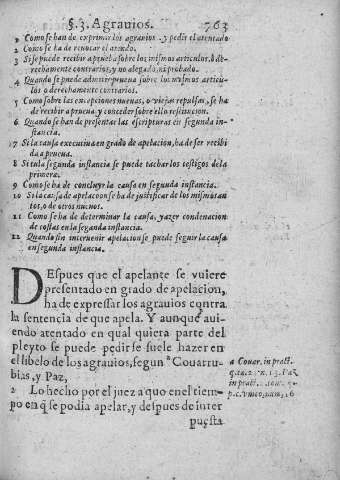 §. 3. Agrauios. 763
1 Como se han de exprimir los agrauios, y pedir el atentado
2 Como se ha de reuocar el atentado.
3 Si se puede recibir a prueua sobre los mismos articulos, o de-
rechamente contrarios, y no alegado, ni probado.
4 Quando se puede admitir prueua sobre los mismos articu-
los o derechamente contrarios.
5 Como sobre las excepciones nueuas, o viejas repulsas, se ha
de recibir a prueua, y conceder sobre ello restitucion.
6 Quando se han de presentar las escripturas en segunda in-
stancia.
7 Si la causa executiua en grado de apelacion, ha de ser recibi
da a prueua.
8 Si en la segunda instancia se puede tachar los testigos de la
primera.
9 Como se ha de concluyr la causa en segunda instancia.
10 Si la causa de apelacion se ha de justificar de los mismos au
tos, o de otros nueuos.
11 Como se ha de determinar la causa, y azer condenacion
de costas en la segunda instancia.
12 Quando sin interuenir apelacion se puede seguir la causa
en segunda instancia.
DEspues que el apelante se vuiere
presentado en grado de apelacion,
ha de expressar los agrauios contra
la sentencia de que apela. Y aunque aui-
endo atentado en qual quiera parte del
pleyto se puede pedir se suele hazer en
el libelo de los agrauios, segun ª Couarru-
bias, y Paz,
2 Lo hecho por el juez a quo en el tiem-
po en q̃ se podia apelar, y despues de inter
puesta
a Couar. in pract.
Paz
in pract.